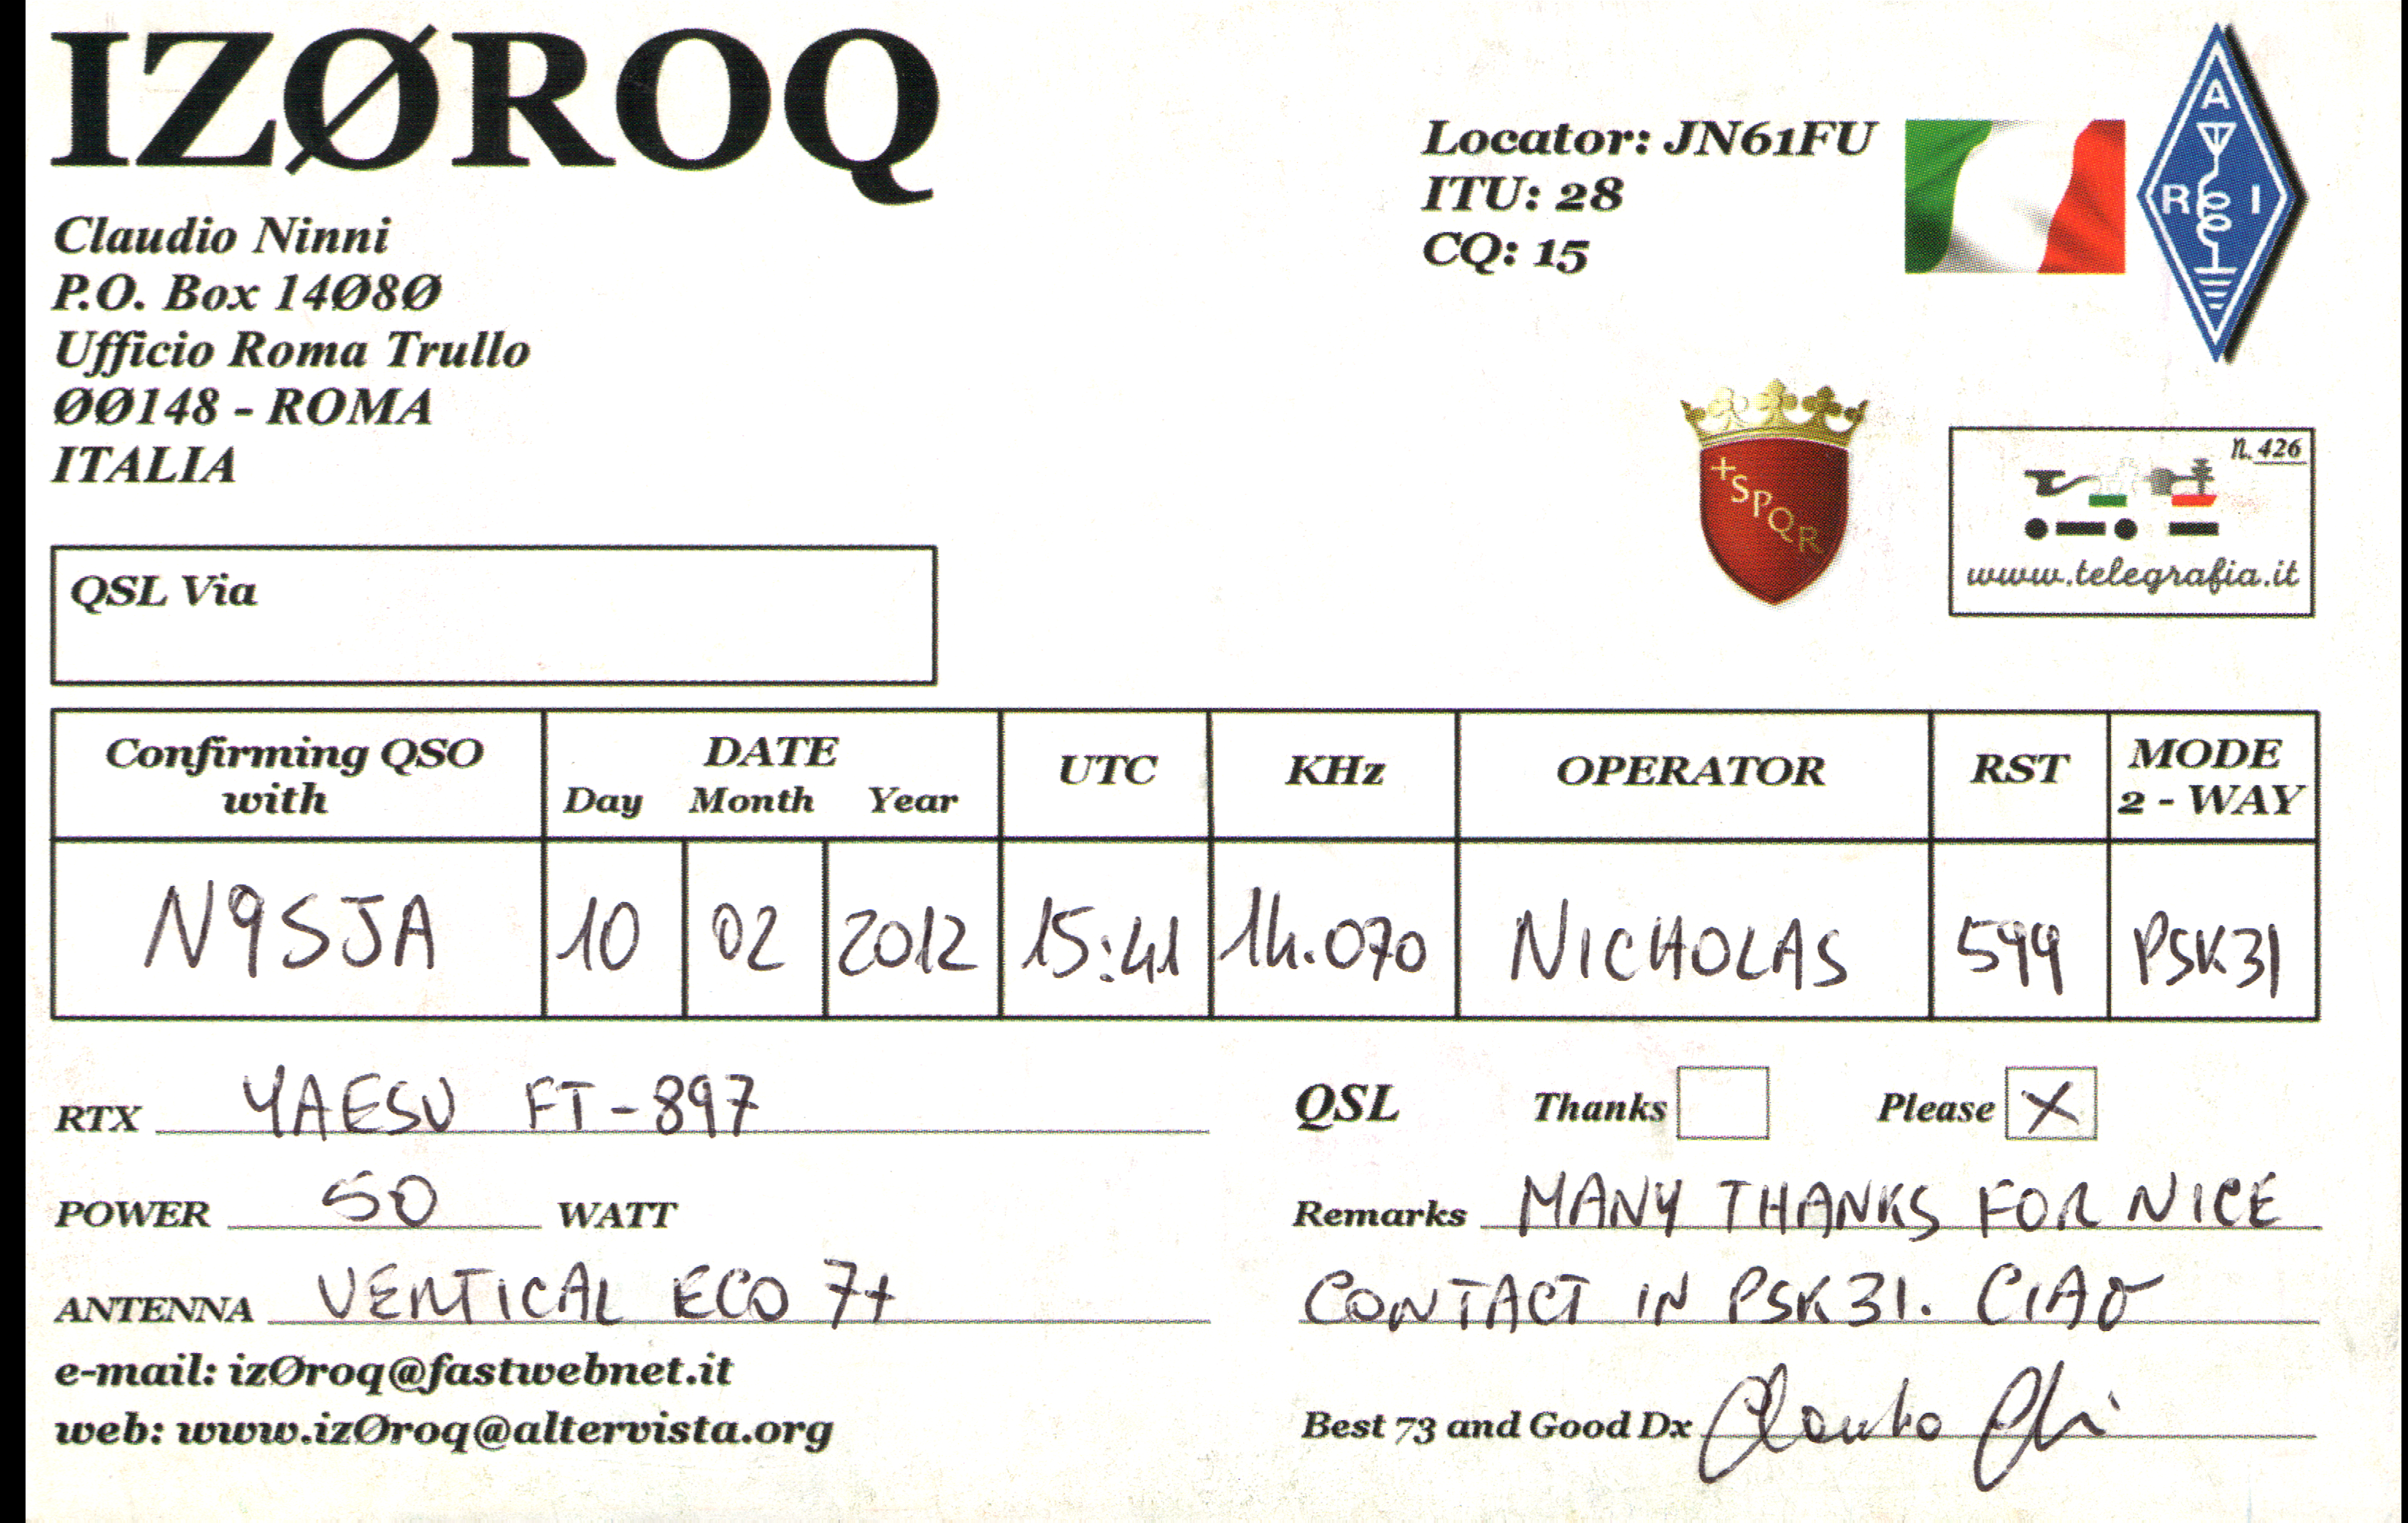 IZØROQ
Claudio Ninni
P.O. Box 14Ø8Ø
Ufficio Roma Trullo
ØØ148 - ROMA
ITALIA
Locator: JN61FU
ITU: 28
CQ: 15
A
R I
+SPQR
n. 426
www.telegrafia.it
QSL Via
Confirming QSO with
DATE
Day Month Year
UTC
KHz
OPERATOR
RST
MODE
2 - WAY
N9SJA 10 02 2012 15:41 14.070 NICHOLAS 599 PSK31
RTX YAESU FT-897
POWER 50 WATT
ANTENNA VERTICAL ECO 7+
e-mail: izØroq@fastwebnet.it
web: www.izØroq@altervista.org
QSL Thanks Please X
Remarks MANY THANKS FOR NICE
CONTACT IN PSK31. CIAO
Best 73 and Good Dx Claudio